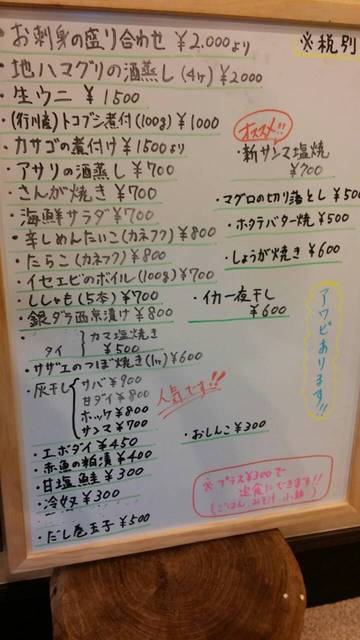 ・お刺身の盛り合わせ ¥2,000より
※税別
・地ハマグリの酒蒸し(4ヶ)¥2000
・生ウニ ¥1500
・(行川産)トコブシ煮付(100g)¥1000
・カサゴの煮付け¥1500より
・アサリの酒蒸し¥700
・さんが焼き¥700
・海鮮サラダ¥700
・辛しめんたいこ(カネフク)¥800
・たらこ(カネフク)¥800
・イセエビのボイル(100g)¥700
・ししゃも(5本)¥700
・銀ダラ西京漬け¥800
・タイ カマ塩焼き
¥500
・サザエのつぼ焼き(1ヶ)¥600
・灰干し サバ¥900
甘ダイ¥800
ホッケ¥800
サンマ¥700
・エボダイ¥450
・赤魚の粕漬¥400
・甘塩鮭¥300
・冷奴¥300
・だし巻玉子¥500
オススメ!!
・新サンマ塩焼
¥700
・マグロの切り落とし¥500
・ホタテバター焼¥500
・しょうが焼き¥600
・イカ一夜干し
¥600
アワビあります!!
人気です!!
・おしんこ¥300
※プラス¥300で
定食にできます!!
(ごはん、みそ汁、小鉢)